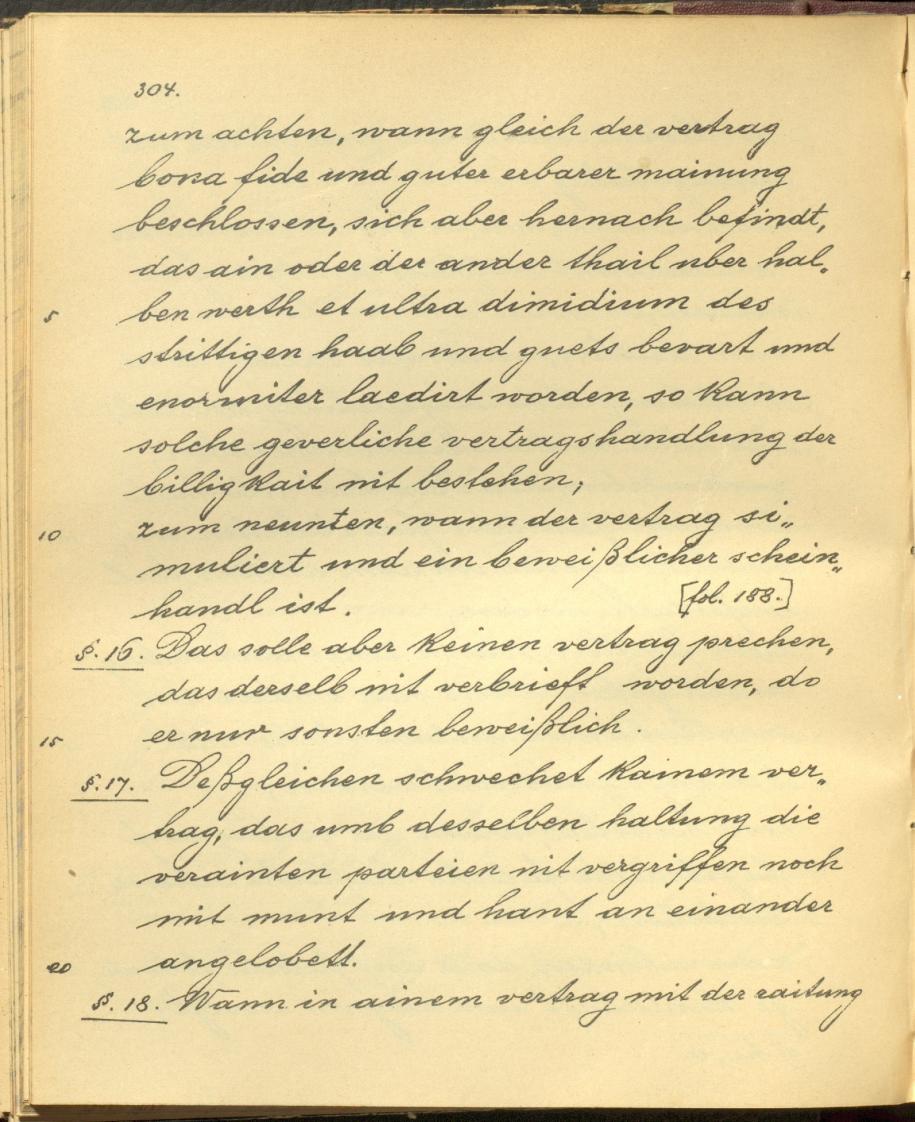 304.
zum achten, wann gleich der vertrag
bona fide und guter erbarer mainung
beschlossen, sich aber hernach befindt,
das ain oder der ander thail uber hal„
5 ben werth et ultra dimidium des
strittigen haab und guets bevart und
enormiter laedirt worden, so kann
solche geverliche vertragshandlung der
billigkait nit bestehen;
10 zum neunten, wann der vertrag si„
muliert und ein beweißlicher schein„
handl ist. [fol. 188.]
§. 16. Das solle aber keinen vertrag prechen,
das derselb nit verbrieft worden, do
15 er nur sonsten beweißlich.
§. 17. Deßgleichen schwechet kainem ver„
trag, das umb desselben haltung die
verainten parteien nit vergriffen noch
mit munt und hant an einander
20 angelobett.
§. 18. Wann in ainem vertrag mit der raitung